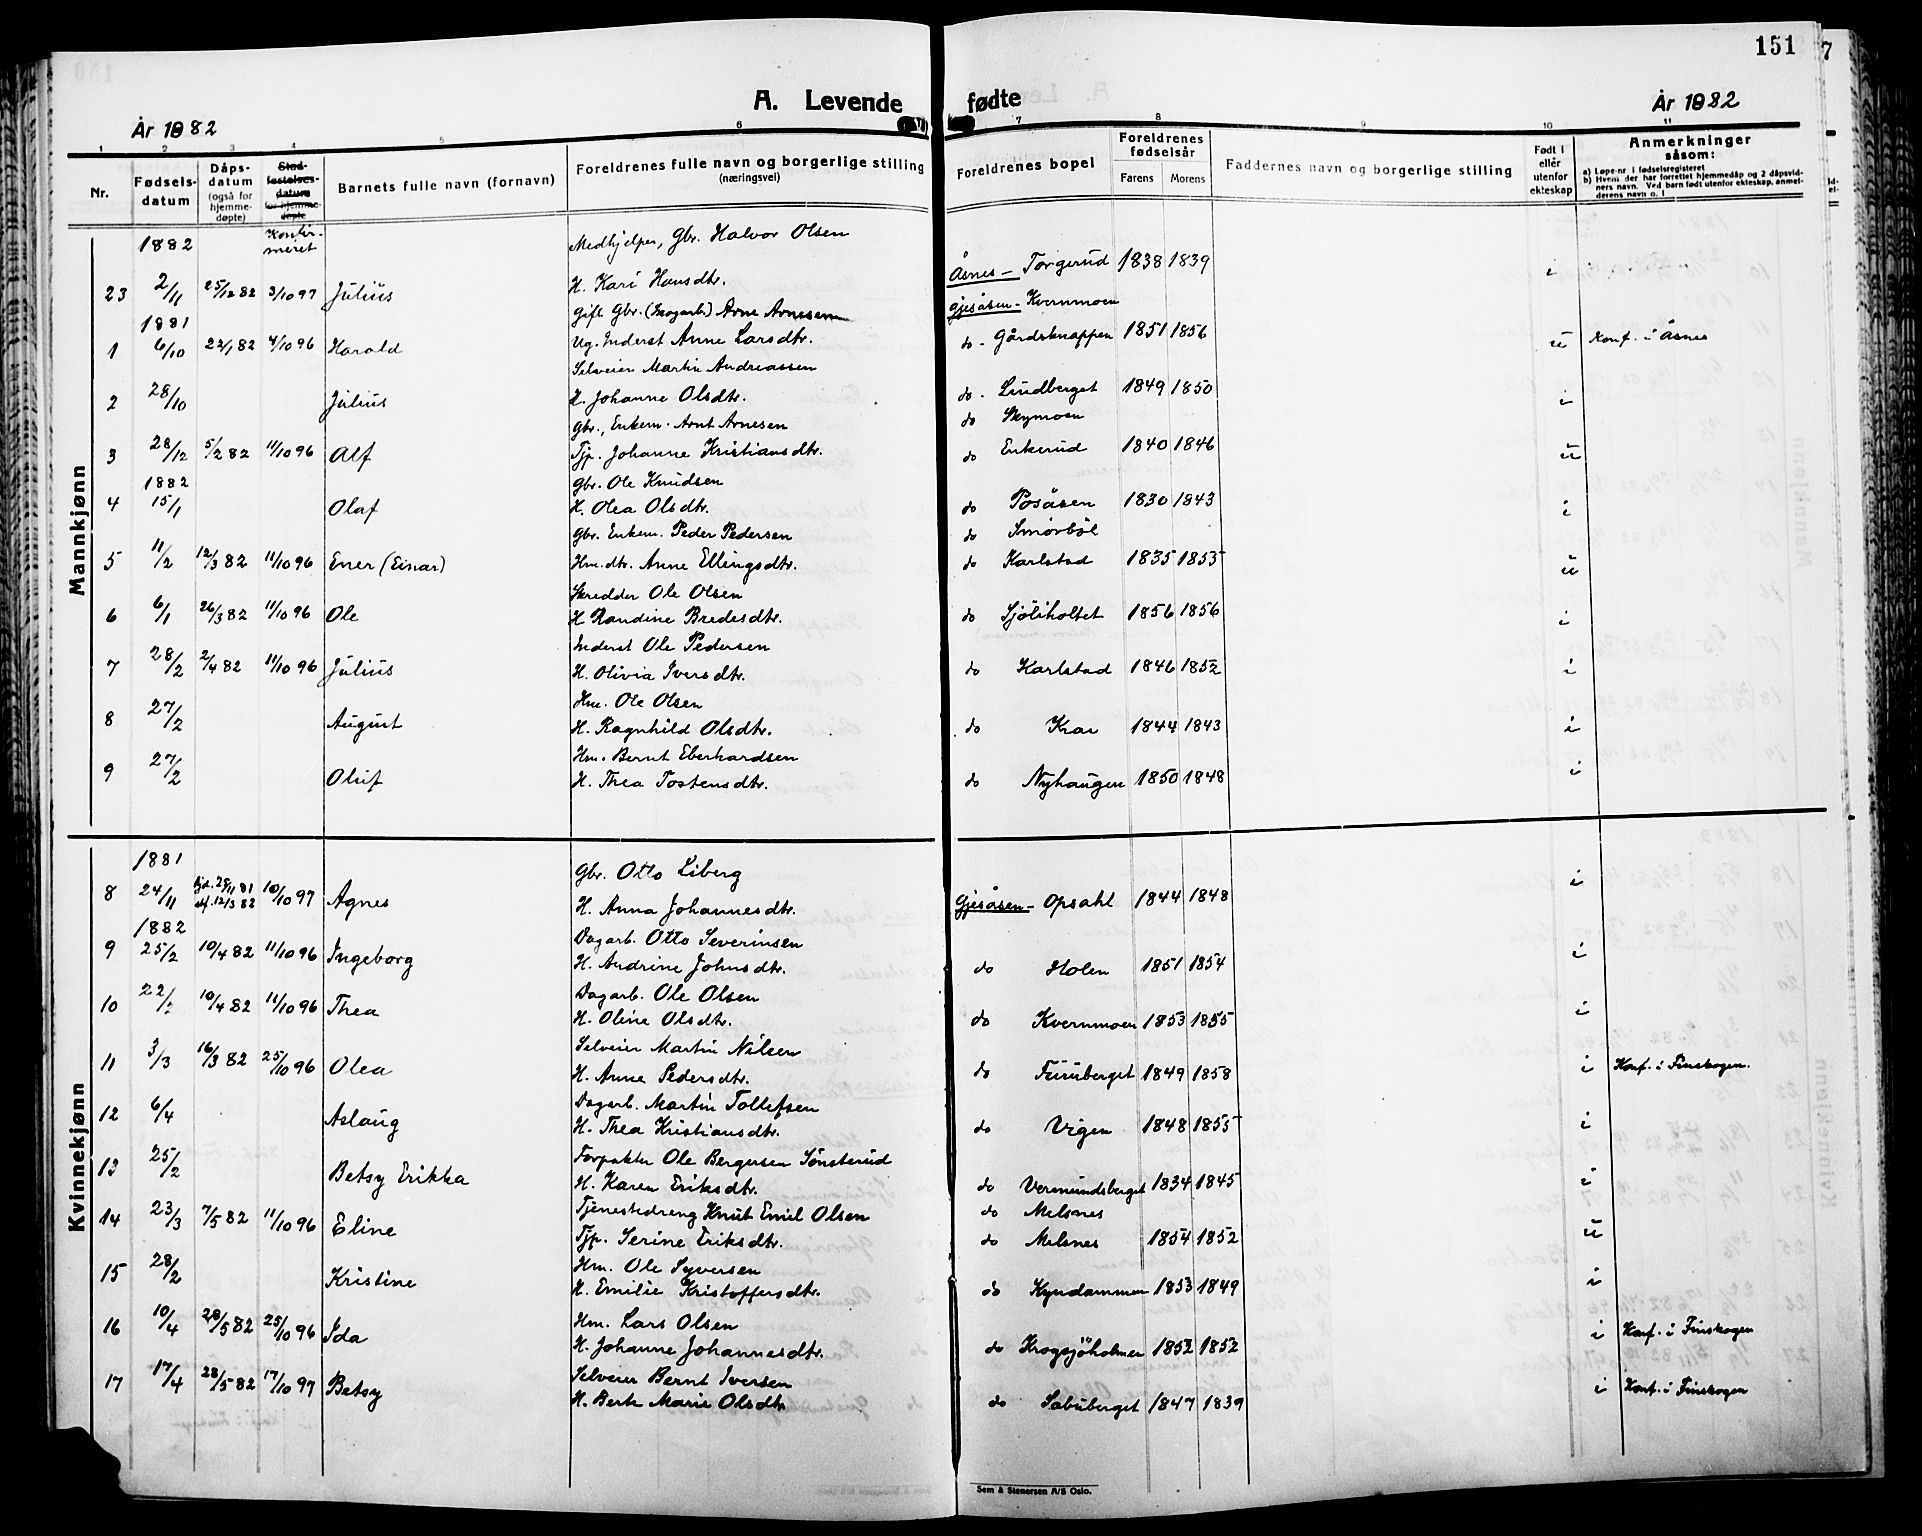 151
7
A. Levende fødte
År 1882
År 1882
1 2 3 4 5 6 7 8 9 10 11
Nr.
Fødsels-datum
Dåps-datum (også for hjemme-døpte)
Stad-festelses-datum for hjemme-døpte
Barnets fulle navn (fornavn)
Foreldrenes fulle navn og borgerlige stilling (næringsvei)
Foreldrenes bopel
Foreldrenes fødselsår
Farens Morens
Faddernes navn og borgerlige stilling
Født i eller utenfor ekteskap
Anmerkninger såsom:
a) Løpe-nr. i fødselsregisteret
b) Hvem der har forrettet hjemmedåp og 2 dåpsvidners navn. Ved barn født utenfor ekteskap, anmelderens navn o. l.
Mannkjønn
1882 Konfirmeret Medhjelper, Gbr. Halvor Olsen
23 2/11 25/12 82 3/10 97 Julius H. Kari Hansdtr. Åsnes - Torgerud 1838 1839 i
1881 Gift Gbr. (Skogarb.) Arne Arnesen Gjesåsen - Kvernmoen
1 6/10 22/1 82 4/10 96 Harald Ug. Inderst Anne Larsdtr. do - Gårdsknappen 1851 1856 u Konf. i Åsnes
Selveier Martin Andreassen
2 28/10 Julius H. Johanne Olsdtr. do - Lindberget 1849 1850 i
Gbr., Enkem. Arnt Arnesen do Skymoen
3 28/12 5/2 82 11/10 96 Alf Tjp. Johanne Kristiansdtr. do Enkerud 1840 1846 u
1882 Gbr. Ole Knudsen
4 15/1 Olaf H. Olea Olsdtr. do Posåsen 1830 1843 i
Gbr. Enkem. Peder Pedersen do Smörböl
5 11/2 12/3 82 11/10 96 Ener (Einar) Hm.dtr. Anne Ellingsdtr. do Karlstad 1835 1855 u
Skredder Ole Olsen
6 6/1 26/3 82 11/10 96 Ole H. Randine Bredesdtr. do Sjöliholtet 1856 1856 i
Inderst Ole Pedersen
7 28/2 2/4 82 11/10 96 Julius H. Olivia Iversdtr. do Karlstad 1846 1852 i
Hm. Ole Olsen
8 27/2 August H. Ragnhild Olsdtr. do Krar 1844 1843 i
Hm. Bernt Eberhardsen
9 27/2 Oluf H. Thea Tostensdtr. do Nyhaugen 1850 1848 i
Kvinnekjønn
1881 Gbr. Otto Liberg
8 24/11 hjd. 25/11 81 stf. 12/3 82 10/10 97 Agnes H. Anna Johannesdtr. Gjesåsen - Opsahl 1844 1848 i
1882 Dagarb. Otto Severinsen
9 25/2 10/4 82 11/10 96 Ingeborg H. Andrine Johnsdtr. do Holen 1851 1854 i
Dagarb. Ole Olsen
10 22/2 10/4 82 11/10 96 Thea H. Oline Olsdtr. do Kvernmoen 1853 1855 i
Selveier Martin Nilsen
11 3/3 16/3 82 25/10 96 Olea H. Anne Pedersdtr. do Furuberget 1849 1858 i Konf. i Finskogen.
Dagarb. Martin Tollefsen
12 6/4 Aslaug H. Thea Kristiansdtr. do Vigen 1848 1855 i
Forpakter Ole Bergersen Sönsterud
13 25/2 Betsy Erikka H. Karen Eriksdtr. do Vermundsberget 1834 1845 i
Tjenestedreng Knut Emil Olsen do Melsnes
14 23/3 7/5 82 11/10 96 Eline Tjp. Serine Eriksdtr. do Melsnes 1854 1852 u
Hm. Ole Syversen
15 28/2 Kristine H. Emilie Kristoffersdtr. do Kyndammen 1853 1849 i
Hm. Lars Olsen
16 10/4 28/5 82 25/10 96 Ida H. Johanne Johannesdtr. do Krogsjöholmen 1852 1852 i Konf. i Finskogen
Selveier Bernt Iversen
17 17/4 28/5 82 17/10 97 Betsy H. Berte Marie Olsdtr do Sabuberget 1847 1839 i Konf. i Finskogen
Sem & Stenersen A/S Oslo.